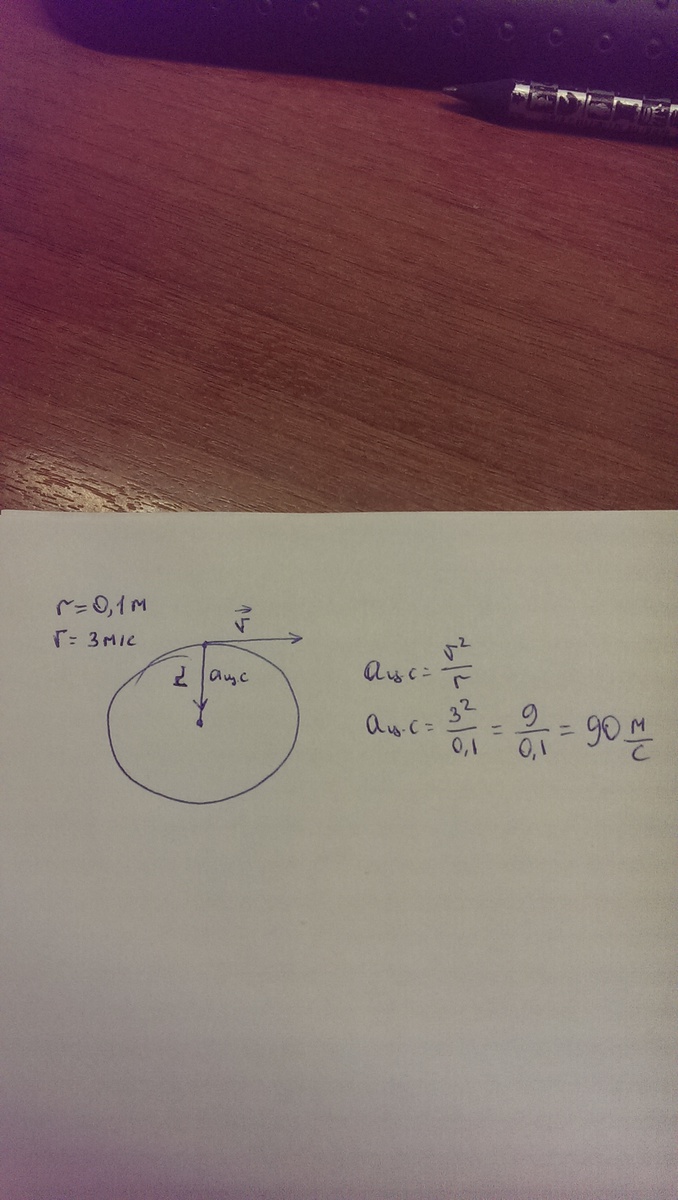 r = 0,1 м
v = 3 м/с
v⃗
r
aц.с
aц.с = v²/r
aц.с = 3²/0,1 = 9/0,1 = 90 м/с